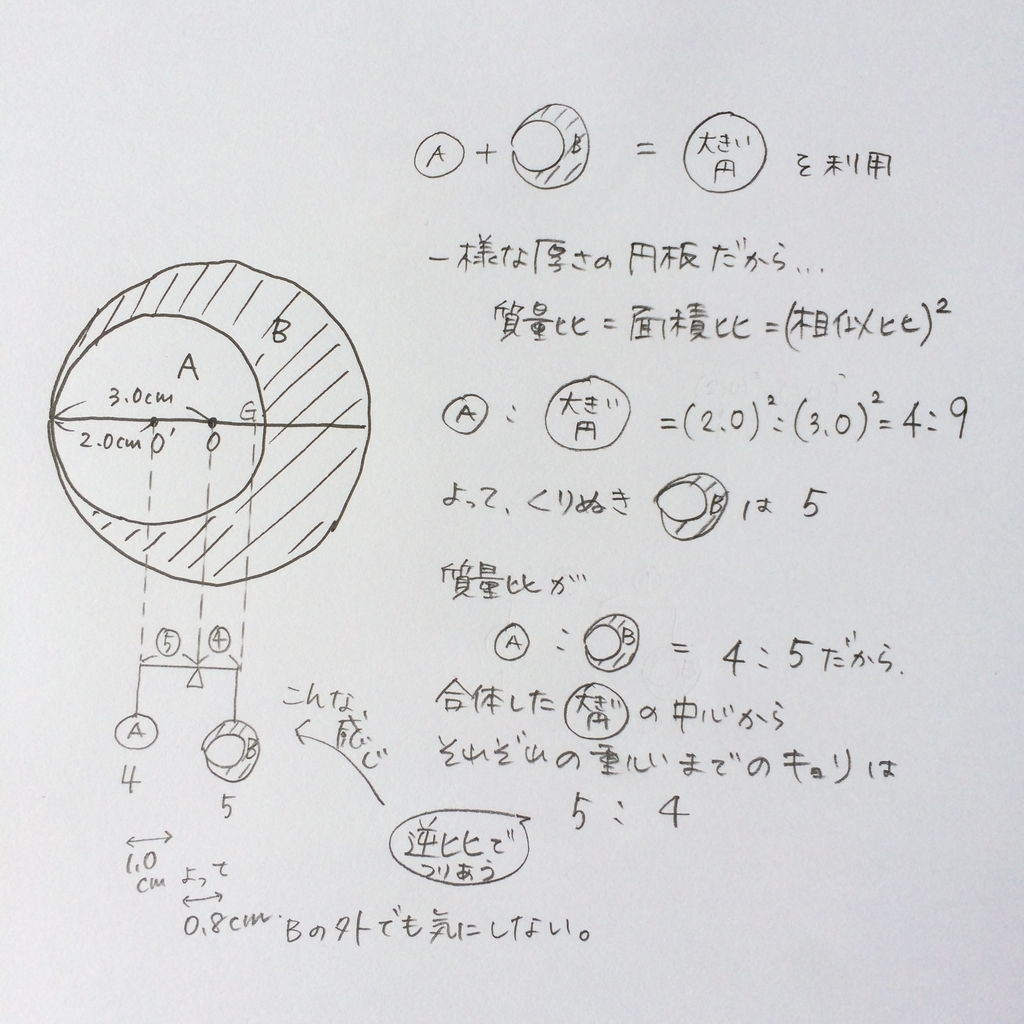 A + B = 大きい円 を利用
一様な厚さの円板だから...
質量比 = 面積比 = (相似比)²
A : 大きい円 = (2.0)² : (3.0)² = 4 : 9
よって、くりぬき B は 5
質量比が
A : B = 4 : 5 だから、
合体した 大きい円 の中心から
それぞれの重心までのキョリは
5 : 4
逆比でつりあう
こんな感じ
B
A
3.0cm
G
2.0cm O' O
⑤ ④
A B
4 5
1.0cm
よって
0.8cm. Bの外でも気にしない。